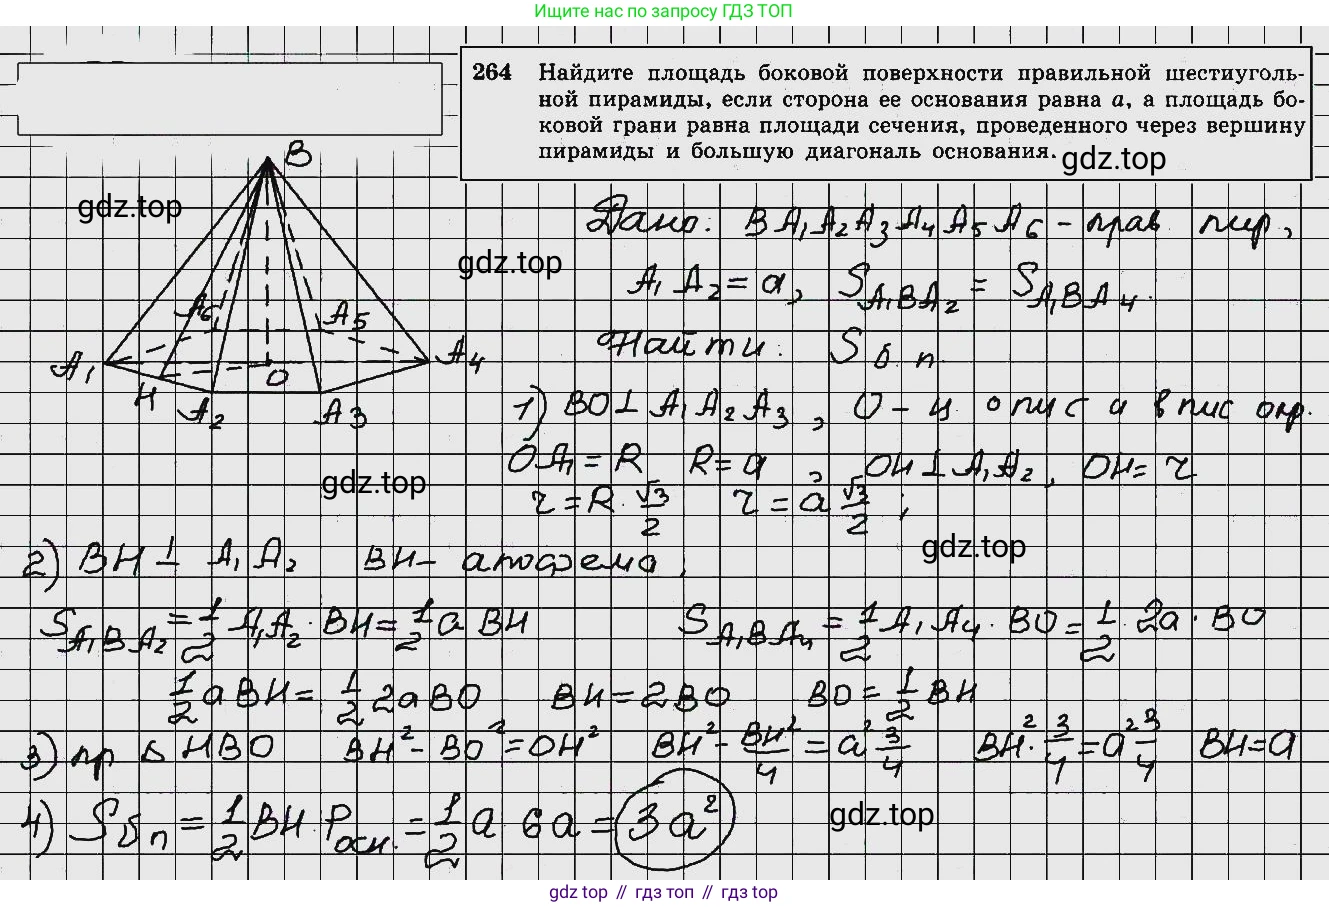 Ищите нас по запросу ГДЗ ТОП
264 Найдите площадь боковой поверхности правильной шестиуголь-
ной пирамиды, если сторона ее основания равна a, а площадь бо-
ковой грани равна площади сечения, проведенного через вершину
пирамиды и большую диагональ основания.
gdz.top
B
gdz.top
Дано: BA₁A₂A₃A₄A₅A₆ - прав пир,
gdz.top
A₁A₂ = a, S_A₁BA₂ = S_A₁BA₄.
A₆ A₅
Найти: S б.п.
A₁ A₄
O
H A₂ A₃
1) BO⊥A₁A₂A₃, O - ц опис и впис окр.
OA₁ = R R = a, OH⊥A₁A₂, OH = r
gdz.top
r = R·√3/2 r = a √3/2;
gdz.top
2) BH⊥A₁A₂ BH - апофема,
S_A₁BA₂ = 1/2 A₁A₂·BH = 1/2 a BH S_A₁BA₄ = 1/2 A₁A₄·BO = 1/2·2a·BO
1/2 a BH = 1/2 2a BO BH = 2BO BO = 1/2 BH
3) пр Δ HBO BH² - BO² = OH² BH² - BH²/4 = a² 3/4 BH²·3/4 = a² 3/4 BH = a
4) S б п = 1/2 BH·P осн. = 1/2 a 6a = 3a²
gdz.top
gdz top // гдз топ // gdz top